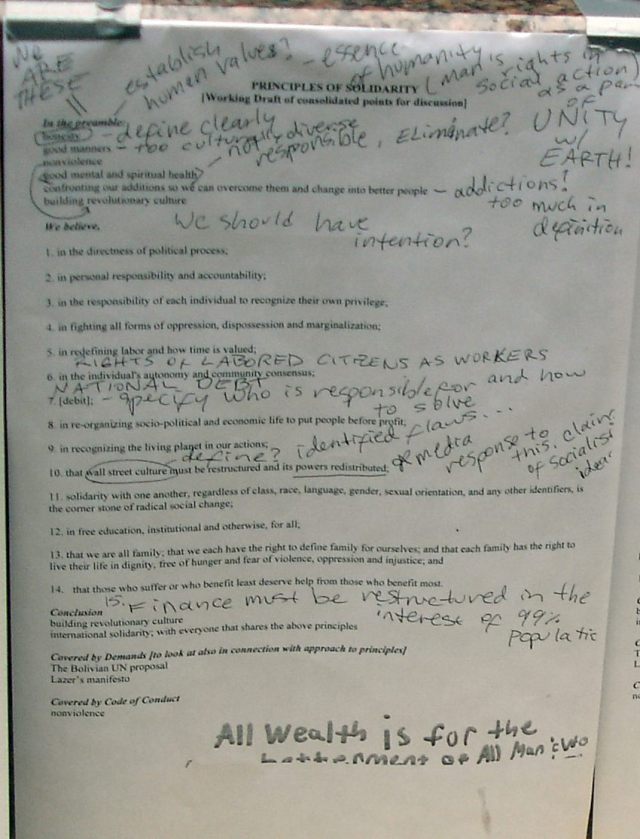 WE
ARE
THESE
establish
human values? - essence
of humanity
(man's rights in
social action)
is
as a part
of
UNITY
w/
EARTH!
PRINCIPLES OF SOLIDARITY
[Working Draft of consolidated points for discussion]
In the preamble:
honesty - define clearly
good manners - too culturally diverse
nonviolence
not responsible, ELIMINATE?
good mental and spiritual health
confronting our additions so we can overcome them and change into better people - addictions?
too much in
definition
building revolutionary culture
We should have
intention?
We believe,
1. in the directness of political process;
2. in personal responsibility and accountability;
3. in the responsibility of each individual to recognize their own privilege;
4. in fighting all forms of oppression, dispossession and marginalization;
5. in redefining labor and how time is valued;
RIGHTS OF LABORED CITIZENS AS WORKERS
6. in the individual's autonomy and community consensus;
NATIONAL DEBT
7. [debit]; - specify who is responsible for and how
to solve
8. in re-organizing socio-political and economic life to put people before profit;
9. in recognizing the living planet in our actions;
define? identified flaws...
10. that wall street culture must be restructured and its powers redistributed;
media
response to
this claim
of socialist
ideas
11. solidarity with one another, regardless of class, race, language, gender, sexual orientation, and any other identifiers, is
the corner stone of radical social change;
12. in free education, institutional and otherwise, for all;
13. that we are all family; that we each have the right to define family for ourselves; and that each family has the right to
live their life in dignity, free of hunger and fear of violence, oppression and injustice; and
14. that those who suffer or who benefit least deserve help from those who benefit most.
15. Finance must be restructured in the
interest of 99%
Conclusion
building revolutionary culture
international solidarity; with everyone that shares the above principles
Covered by Demands [to look at also in connection with approach to principles]
The Bolivian UN proposal
Lazer's manifesto
Covered by Code of Conduct
nonviolence
All Wealth is for the
betterment of All Man